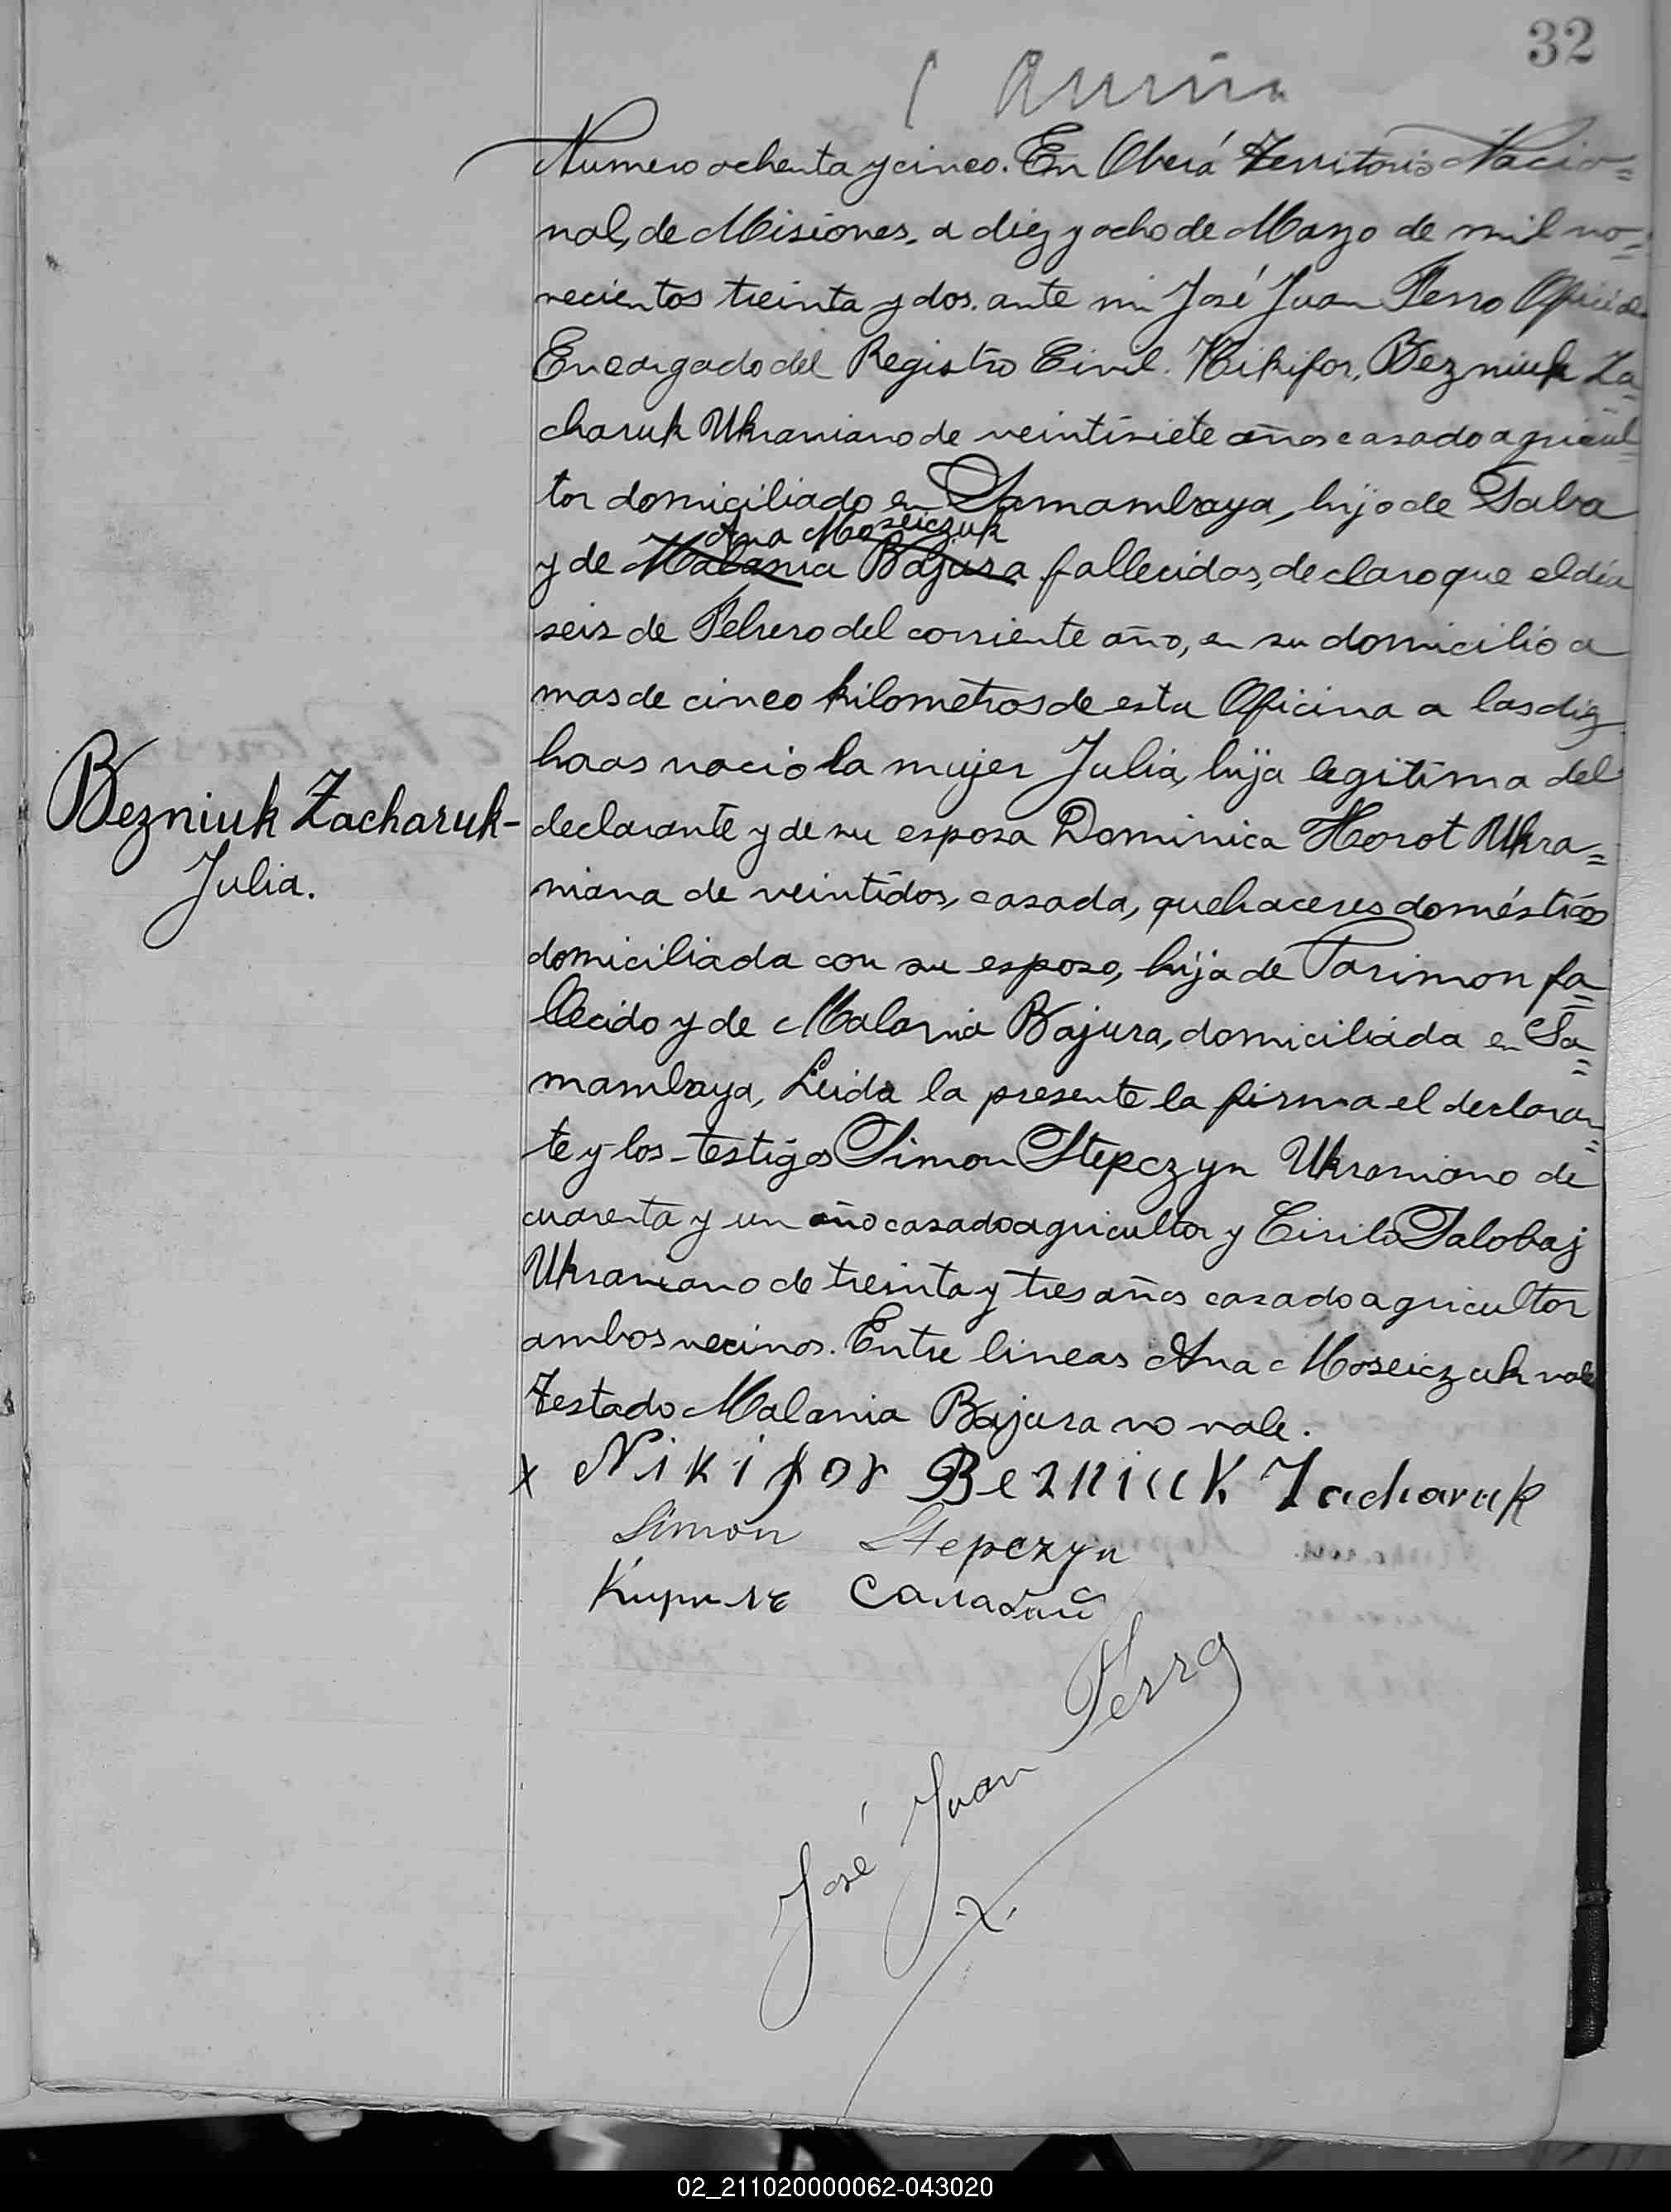 32
Numero ochenta y cinco. En Oberá Territorio Nacio=
nal, de Misiónes, a diez y ocho de Mayo de mil no=
vecientos treinta y dos. ante mi José Juan Ferro Oficial
Encargado del Registro Civil. Nikifor, Bezniuk Za=
charuk Ukraniano de veintisiete años casado agricul=
tor domiciliado en Samambaya, hijo de Saba
Ana Moseiczuk
y de Malania Bajura fallecidos, declaro que el día
seis de Febrero del corriente año, en su domicilio a
mas de cinco kilometros de esta Oficina a las diez
horas nació la mujer Julia, hija legitima del
Bezniuk Zacharuk-
Julia.
declarante y de su esposa Dominica Horot Ukra=
niana de veintidos, casada, quehaceres domésticos
domiciliada con su esposo, hija de Parimon fa=
llecido y de Malania Bajura, domiciliada en Sa=
mambaya, Leida la presente la firma el declaran=
te y los testigos Simon Stepczyn Ukraniano de
cuarenta y un año casado agricultor y Cirilo Salobaj
Ukraniano de treinta y tres años casado agricultor
ambos vecinos. Entre lineas Ana Moseiczuk vale
Testado Malania Bajura no vale.
x Nikifor Bezniuk Zacharuk
Simon Stepczyn
José Juan Ferro
02_211020000062-043020